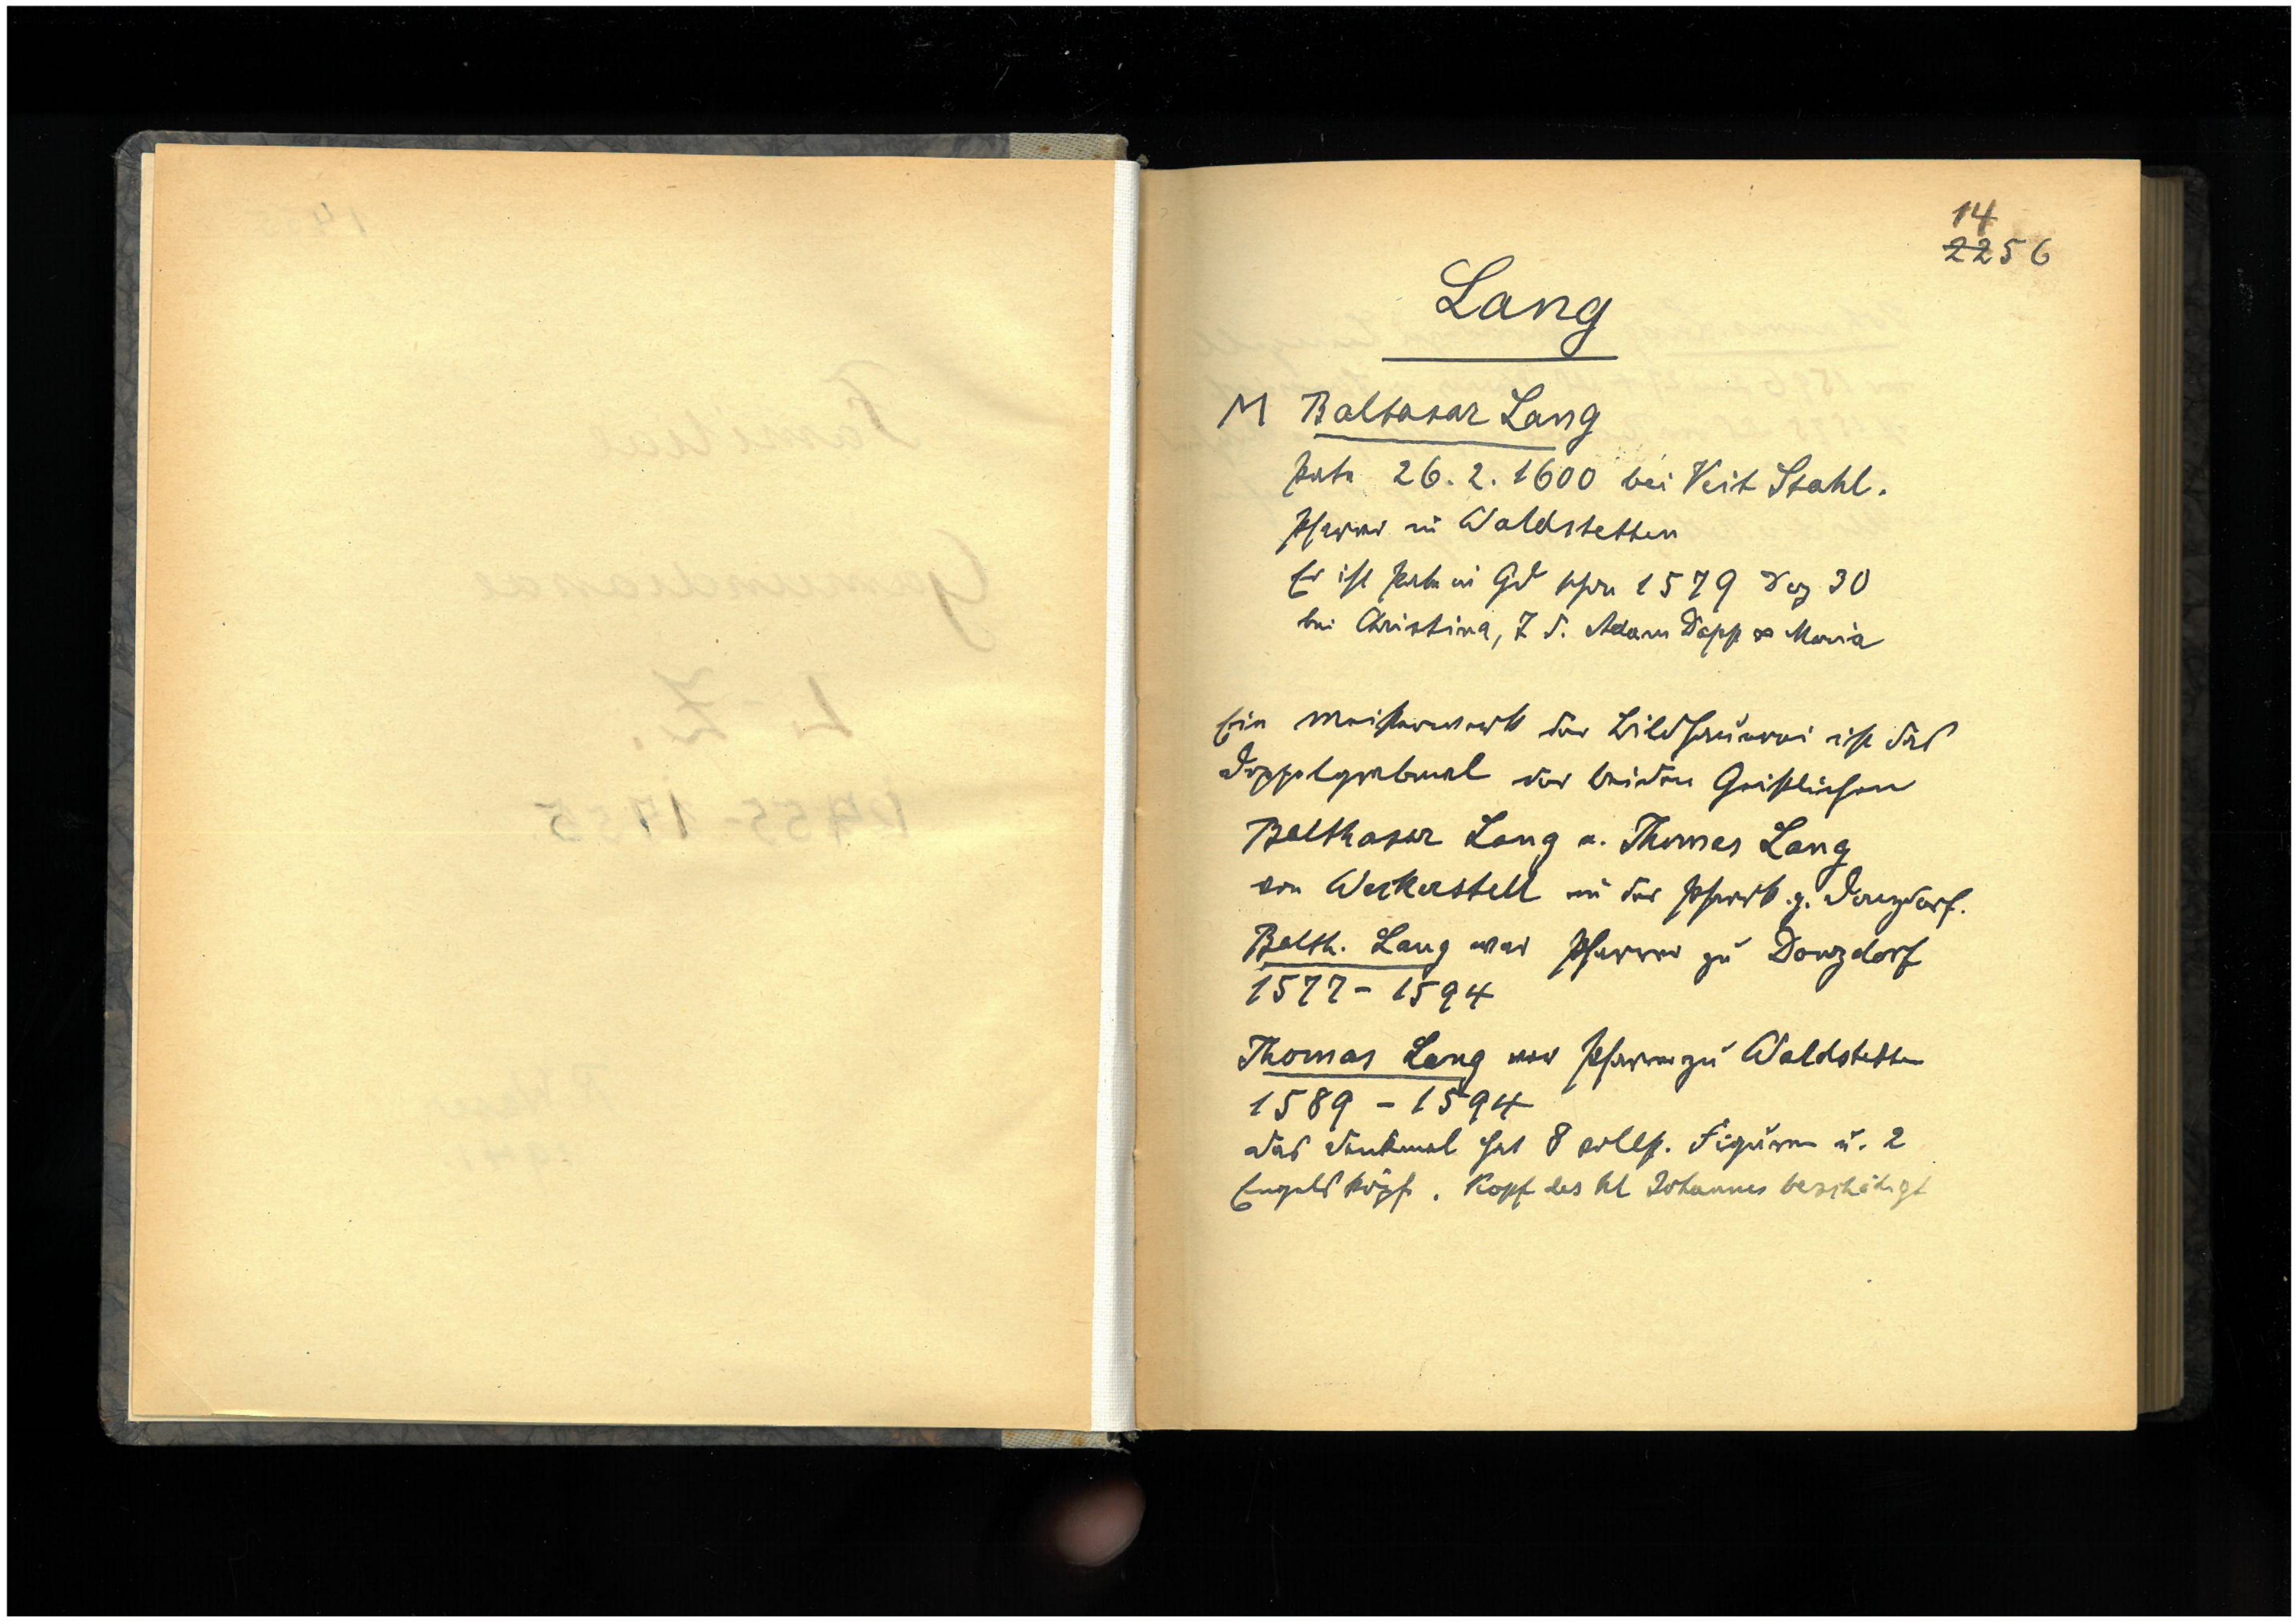 14
2256
Lang
M Baltasar Lang
Pate 26.2.1600 bei Veit Stahl.
Pfarrer in Waldstetten
Er ist Pate in Gd schon 1579 Dez 30
bei Christina, T. d. Adam Dapp ∞ Maria
Ein Meisterwerk der Bildhauerei ist das
Doppelgrabmal der beiden Geistlichen
Balthasar Lang u. Thomas Lang
von Weckerstell in der Pfarrk. z. Donzdorf.
Balth. Lang war Pfarrer zu Donzdorf
1577 - 1594
Thomas Lang war Pfarrer zu Waldstetten
1589 - 1594
Das Denkmal hat 8 vollst. Figuren u. 2
Engelsköpfe. Kopf des hl Johannes beschädigt